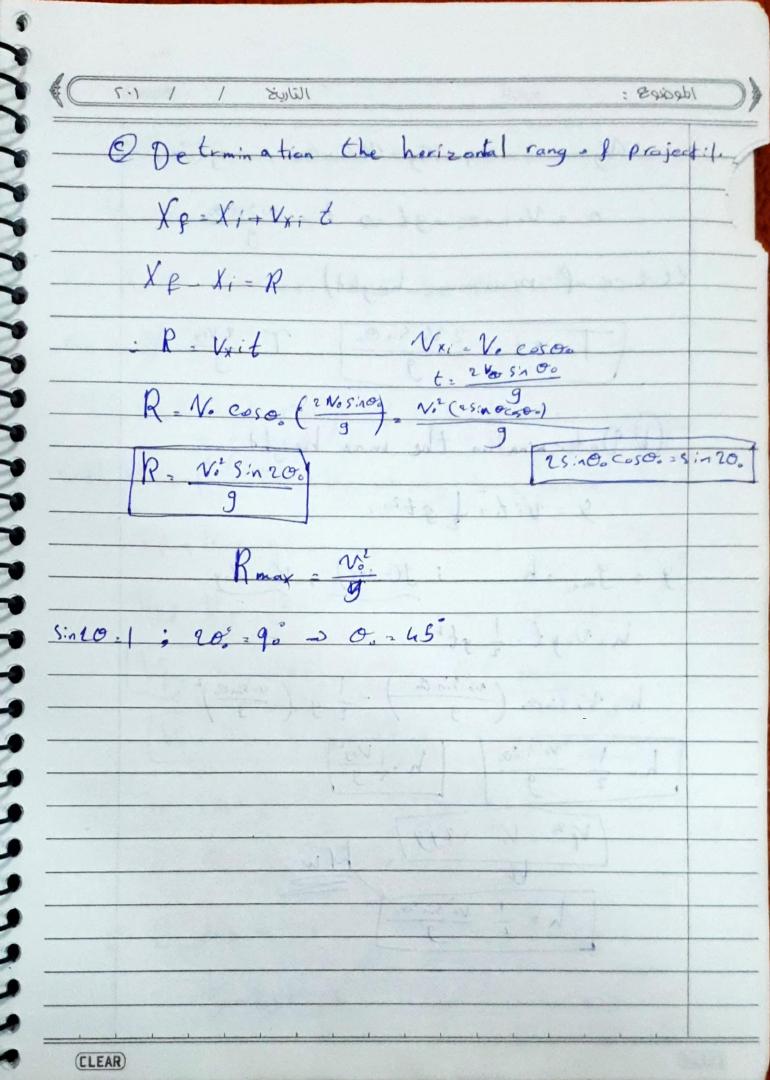 الموضوع : التاريخ / / ٢٠١
© Detrmination the horizontal rang of projectil.
X_f = X_i + V_xi t
X_f - X_i = R
∴ R = V_xi t V_xi = V₀ cosθ₀
t = 2V₀ sinθ₀ / g
R = V₀ cosθ₀ (2V₀ sinθ₀ / g) = V₀² (2sinθcosθ₀) / g
R = V₀² Sin2θ₀ / g 2sinθ₀ cosθ₀ = sin2θ₀
R_max = V₀² / g
Sin2θ = 1 ; 2θ₀° = 90° ⇒ θ₀ = 45°
CLEAR